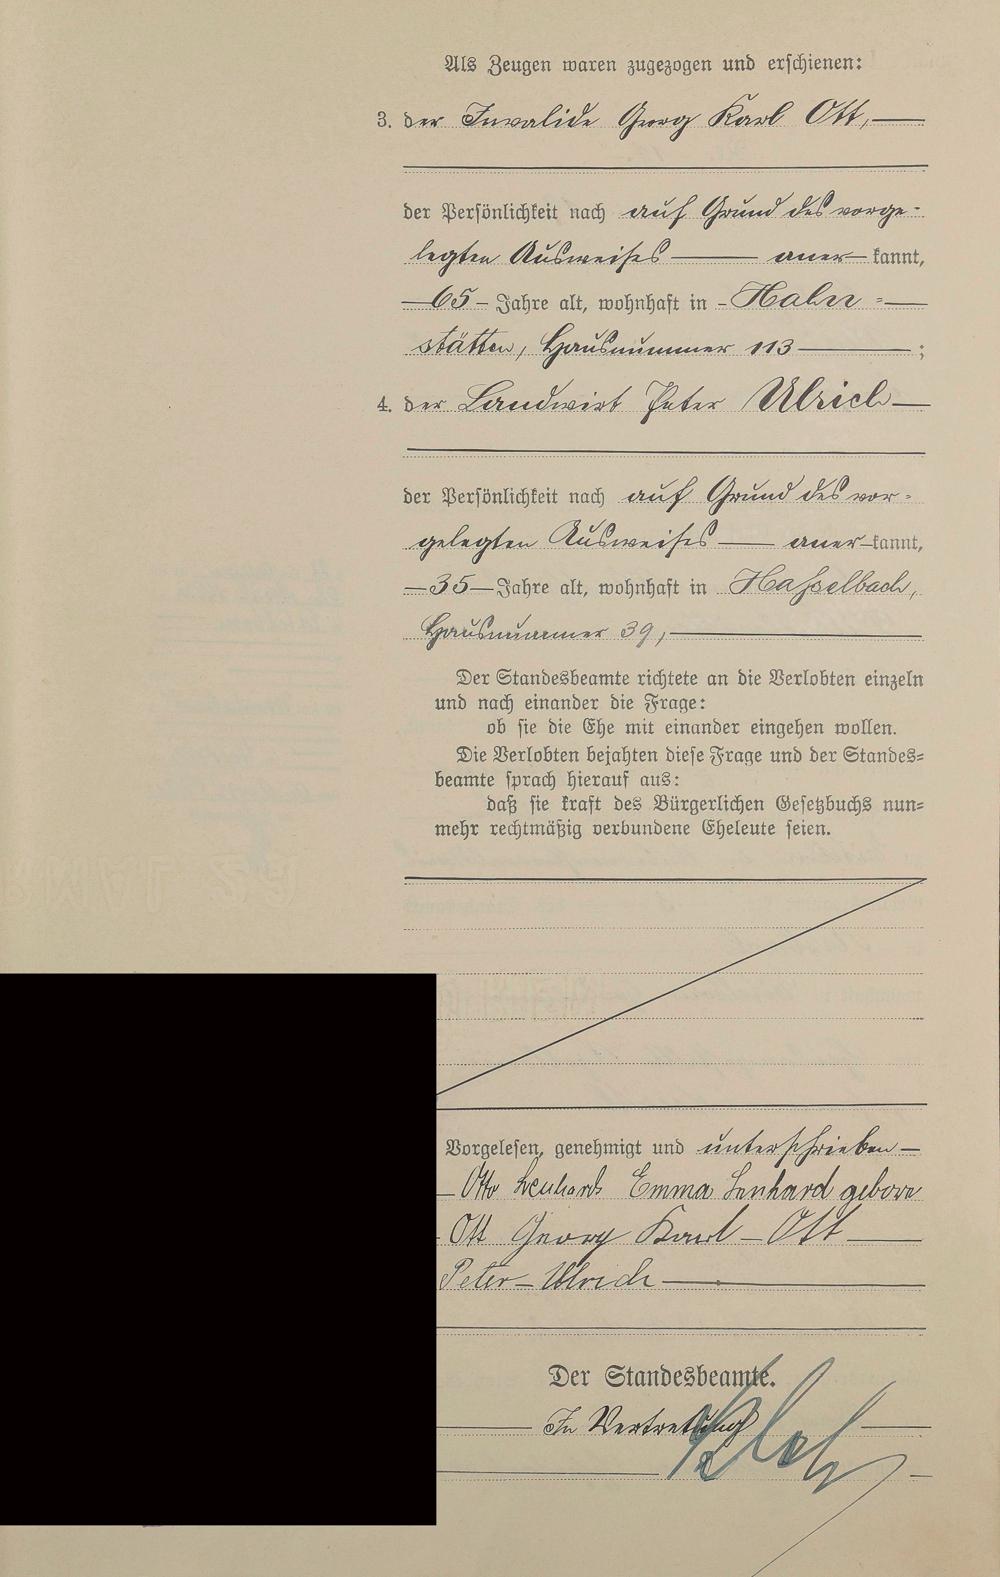 Als Zeugen waren zugezogen und erschienen:
3. der Invalide Georg Karl Ott,
der Persönlichkeit nach auf Grund des vorge-
legten Ausweises aner kannt,
65 Jahre alt, wohnhaft in Hahn=
stätten, Hausnummer 113 ;
4. der Landwirt Peter Ulrich
der Persönlichkeit nach auf Grund des vor-
gelegten Ausweises aner kannt,
35 Jahre alt, wohnhaft in Hasselbach,
Hausnummer 39,
Der Standesbeamte richtete an die Verlobten einzeln
und nach einander die Frage:
ob sie die Ehe mit einander eingehen wollen.
Die Verlobten bejahten diese Frage und der Standes=
beamte sprach hierauf aus:
daß sie kraft des Bürgerlichen Gesetzbuchs nun=
mehr rechtmäßig verbundene Eheleute seien.
Vorgelesen, genehmigt und unterschrieben
Otto Lenhard Emma Lenhard geborne
Ott Georg Karl Ott
Peter Ulrich
Der Standesbeamte.
In Vertretung